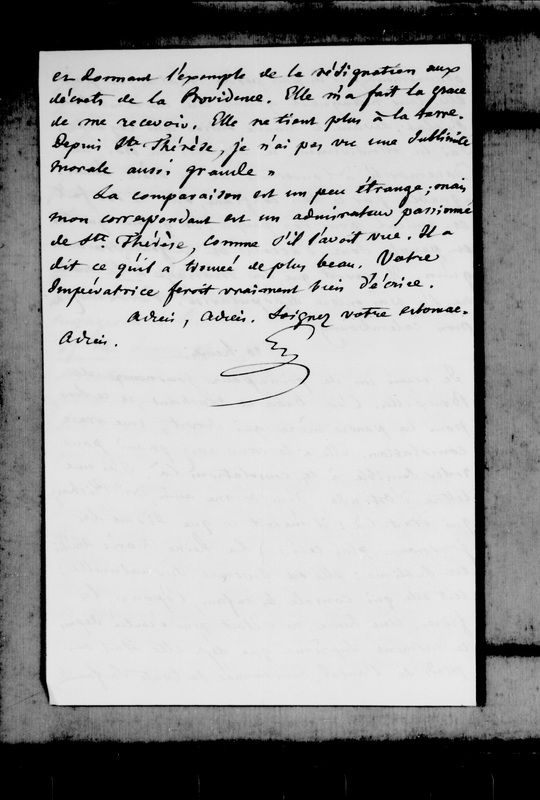 et donnant l'exemple de la résignation aux
décrets de la Providence. Elle m'a fait la grace
de me recevoir. Elle ne tient plus à la terre.
Depuis Ste Thérèse, je n'ai pas vu une Sublimité
morale aussi grande »
La comparaison est un peu étrange ; mais
mon correspondant est un admirateur passionné
de Ste Thérèse, comme s'il l'avait vue. Il a
dit ce qu'il a trouvé de plus beau. Votre
Impératrice feroit vraiment bien d'écrire.
Adieu, Adieu. Soignez votre estomac.
Adieu.